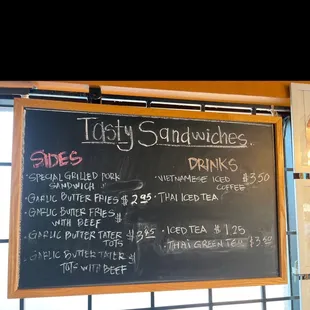 Tasty Sandwiches
SIDES
• SPECIAL GRILLED PORK
SANDWICH
• GARLIC BUTTER FRIES $2.95
• GARLIC BUTTER FRIES $
WITH BEEF
• GARLIC BUTTER TATER $3.
TOTS
• GARLIC BUTTER TATER $
TOTS WITH BEEF
DRINKS
• VIETNAMESE ICED $3.50
COFFEE
• THAI ICED TEA
• ICED TEA $1.25
• THAI GREEN TEA $3.50